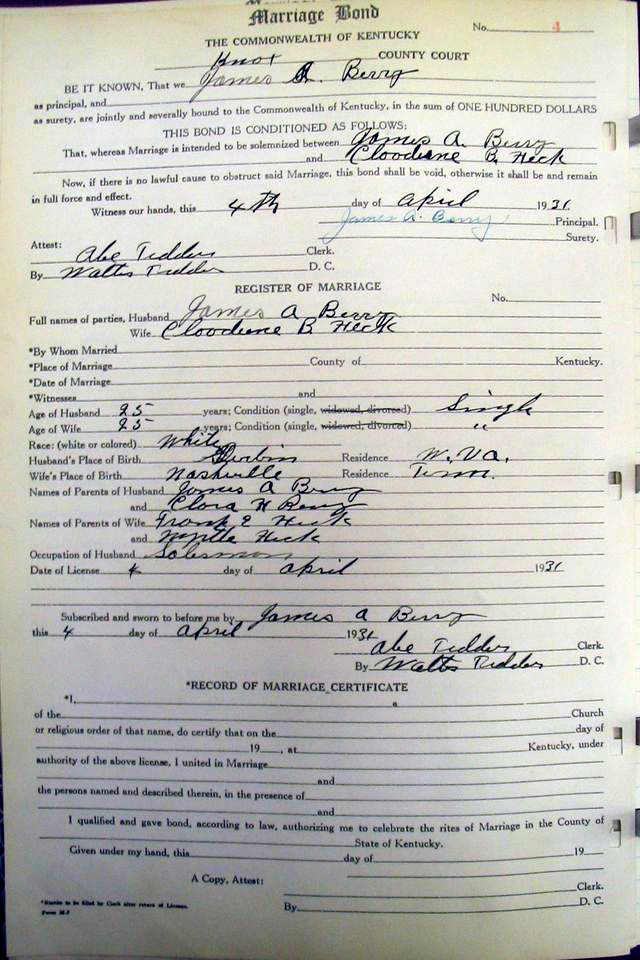 Marriage Bond
No. 4
THE COMMONWEALTH OF KENTUCKY
Knox COUNTY COURT
BE IT KNOWN, That we James A. Berry
as principal, and
as surety, are jointly and severally bound to the Commonwealth of Kentucky, in the sum of ONE HUNDRED DOLLARS
THIS BOND IS CONDITIONED AS FOLLOWS:
That, whereas Marriage is intended to be solemnized between James A. Berry
and Cloodiene B. Heck
Now, if there is no lawful cause to obstruct said Marriage, this bond shall be void, otherwise it shall be and remain
in full force and effect.
Witness our hands, this 4th day of April 1931.
James A. Berry Principal.
Surety.
Attest:
Abe Tedders Clerk.
By Tedders D. C.
REGISTER OF MARRIAGE
No.
Full names of parties, Husband James A Berry
Wife Cloodiene B. Heck
*By Whom Married
*Place of Marriage County of Kentucky.
*Date of Marriage
*Witnesses and
Age of Husband 25 years; Condition (single, widowed, divorced) Single
Age of Wife 25 years; Condition (single, widowed, divorced) "
Race: (white or colored) White
Husband's Place of Birth Residence W. Va.
Wife's Place of Birth Nashville Residence Tenn.
Names of Parents of Husband James A Berry
and Clora H Berry
Names of Parents of Wife Frank E Heck
and Myrtle Heck
Occupation of Husband Salesman
Date of License 4 day of April 1931
Subscribed and sworn to before me by James A Berry
this 4 day of April 1931
Abe Tedders Clerk.
By Tedders D. C.
*RECORD OF MARRIAGE CERTIFICATE
*I, a
of the Church
or religious order of that name, do certify that on the day of
19 , at Kentucky, under
authority of the above license, I united in Marriage
and
the persons named and described therein, in the presence of
and
I qualified and gave bond, according to law, authorizing me to celebrate the rites of Marriage in the County of
State of Kentucky.
Given under my hand, this day of 19
A Copy, Attest: Clerk.
By D. C.
*Blanks to be filled by Clerk after return of License.